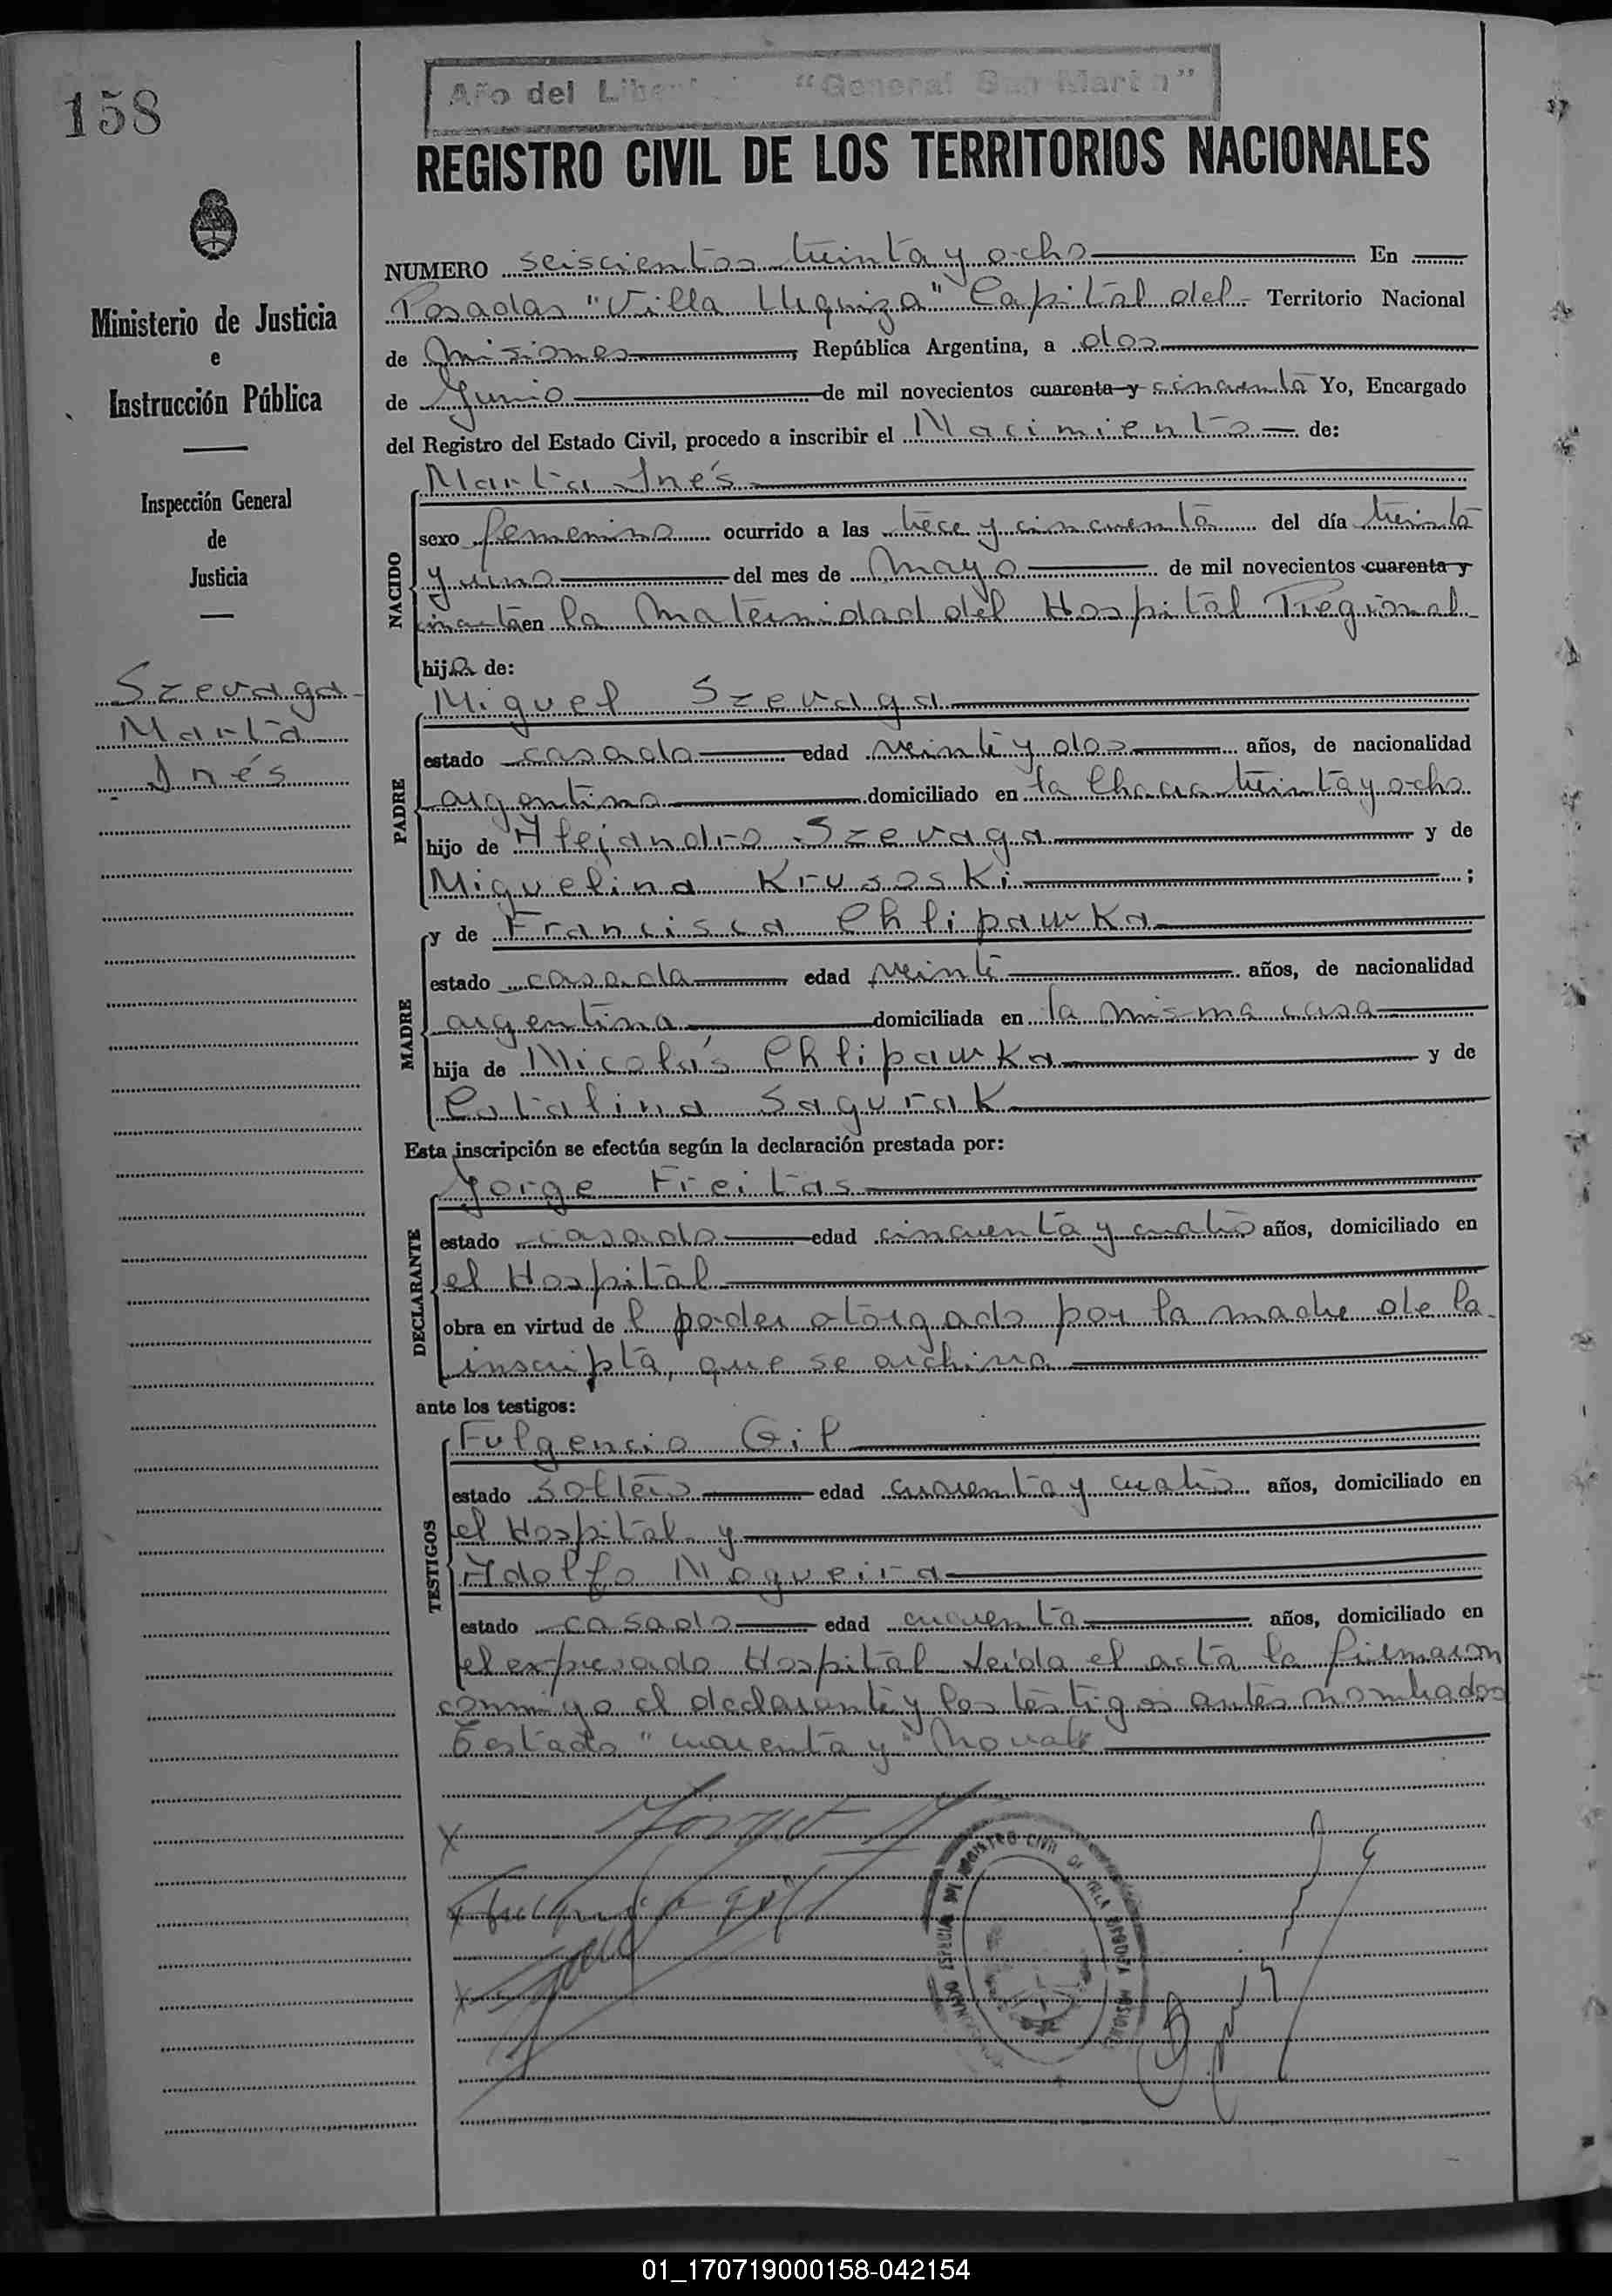 158
Año del Libertador "General San Martín"
REGISTRO CIVIL DE LOS TERRITORIOS NACIONALES
Ministerio de Justicia
e
Instrucción Pública
Inspección General
de
Justicia
Szevaga
Marta
Inés
NUMERO seiscientos treinta y ocho En
Posadas "Villa Urquiza" Capital del Territorio Nacional
de Misiones, República Argentina, a dos
de Junio de mil novecientos cuarenta y cincuenta Yo, Encargado
del Registro del Estado Civil, procedo a inscribir el Nacimiento de:
NACIDO
Marta Inés
sexo femenino ocurrido a las trece y cincuenta del día treinta
y uno del mes de Mayo de mil novecientos cuarenta y
cincuenta en la Maternidad del Hospital Regional
hija de:
PADRE
Miguel Szevaga
estado casado edad veinte y dos años, de nacionalidad
argentina domiciliado en la Chacra treinta y ocho
hijo de Alejandro Szevaga y de
Miguelina Krusoski ;
MADRE
y de Francisca Chlipawka
estado casada edad veinte años, de nacionalidad
argentina domiciliada en la misma casa
hija de Nicolás Chlipawka y de
Catalina Sagurak
Esta inscripción se efectúa según la declaración prestada por:
DECLARANTE
Jorge Freitas
estado casado edad cincuenta y cuatro años, domiciliado en
el Hospital
obra en virtud del poder otorgado por la madre de la
inscripta, que se archiva
ante los testigos:
TESTIGOS
Fulgencio Gil
estado soltero edad cuarenta y cuatro años, domiciliado en
el Hospital y
Adolfo Nogueira
estado casado edad cuarenta años, domiciliado en
el expresado Hospital Leída el acta la firmaron
conmigo el declarante y los testigos antes nombrados
Testado "cuarenta y" No vale
REGISTRO CIVIL DE VILLA URQUIZA MISIONES
01_170719000158-042154